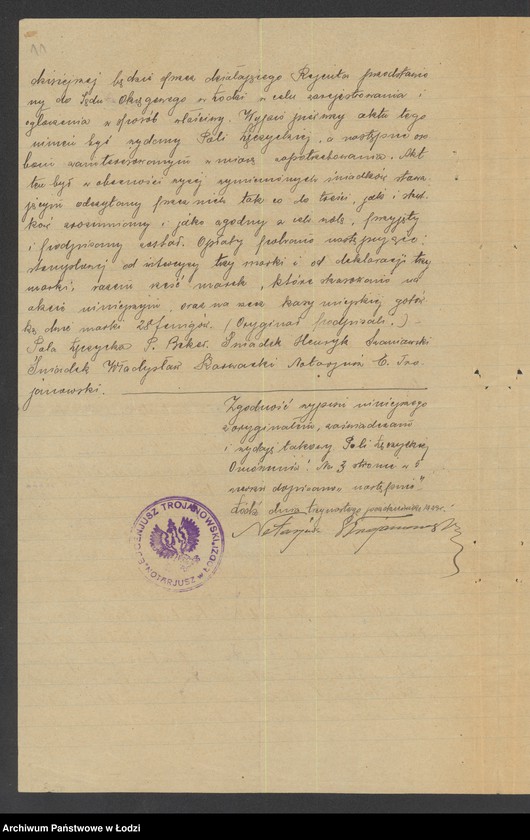 11
dzisiejszej będzie przez działającego Rejenta przedstawio
ny do Sądu Okręgowego w Łodzi w celu zarejestrowania i
ogłoszenia w sposób właściwy. Wypis pierwszy aktu tego
winien być wydany Poli Łęczyckiej, a następne oso
bom zainteresowanym w miarę zapotrzebowania. Akt
ten był w obecności wyżej wymienionych świadków staw
jącym odczytany przez nich tak co do treści, jak i skut
ków zrozumiany i jako zgodny z ich wolą, przyjęty
i podpisany został. Opłaty pobrano następujące:
stemplowej od intercyzy trzy marki i od deklaracji trzy
marki, razem sześć marek, które skasowano na
akcie niniejszym, oraz na rzecz kasy miejskiej gotów
ką dwie marki 28 fenigów. (Oryginał podpisali:)
Pola Łęczycka P. Beker. Świadek Henryk
Świadek Władysław Notarjusz E. Tro
janowski.
Zgodność wypisu niniejszego
z oryginałem, zaświadczam
i wydaję takowy Poli Łęczyckiej
Omówienie: Na 3 stronie w 6
wierszu dopisano "następnie"
Łódź dnia trzynastego października
Notarjusz E Trojanowski
EUGENJUSZ TROJANOWSKI
NOTARJUSZ
Archiwum Państwowe w Łodzi